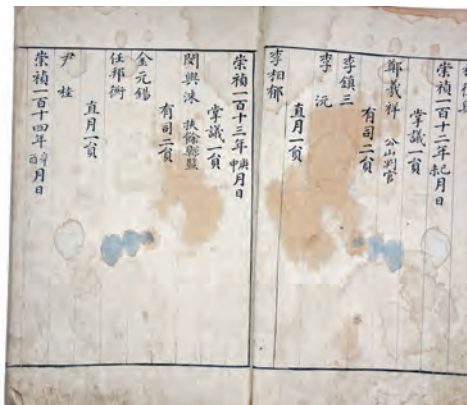 崇禎一百十二年己未月日
掌議一員
鄭義祥 公山判官
有司二員
李鎮三
李沅
直月一員
李相郁
崇禎一百十三年庚申月日
掌議一員
閔興洙 扶餘縣監
有司二員
金元錫
任邦衡
直月一員
尹桂
崇禎一百十四年辛酉月日